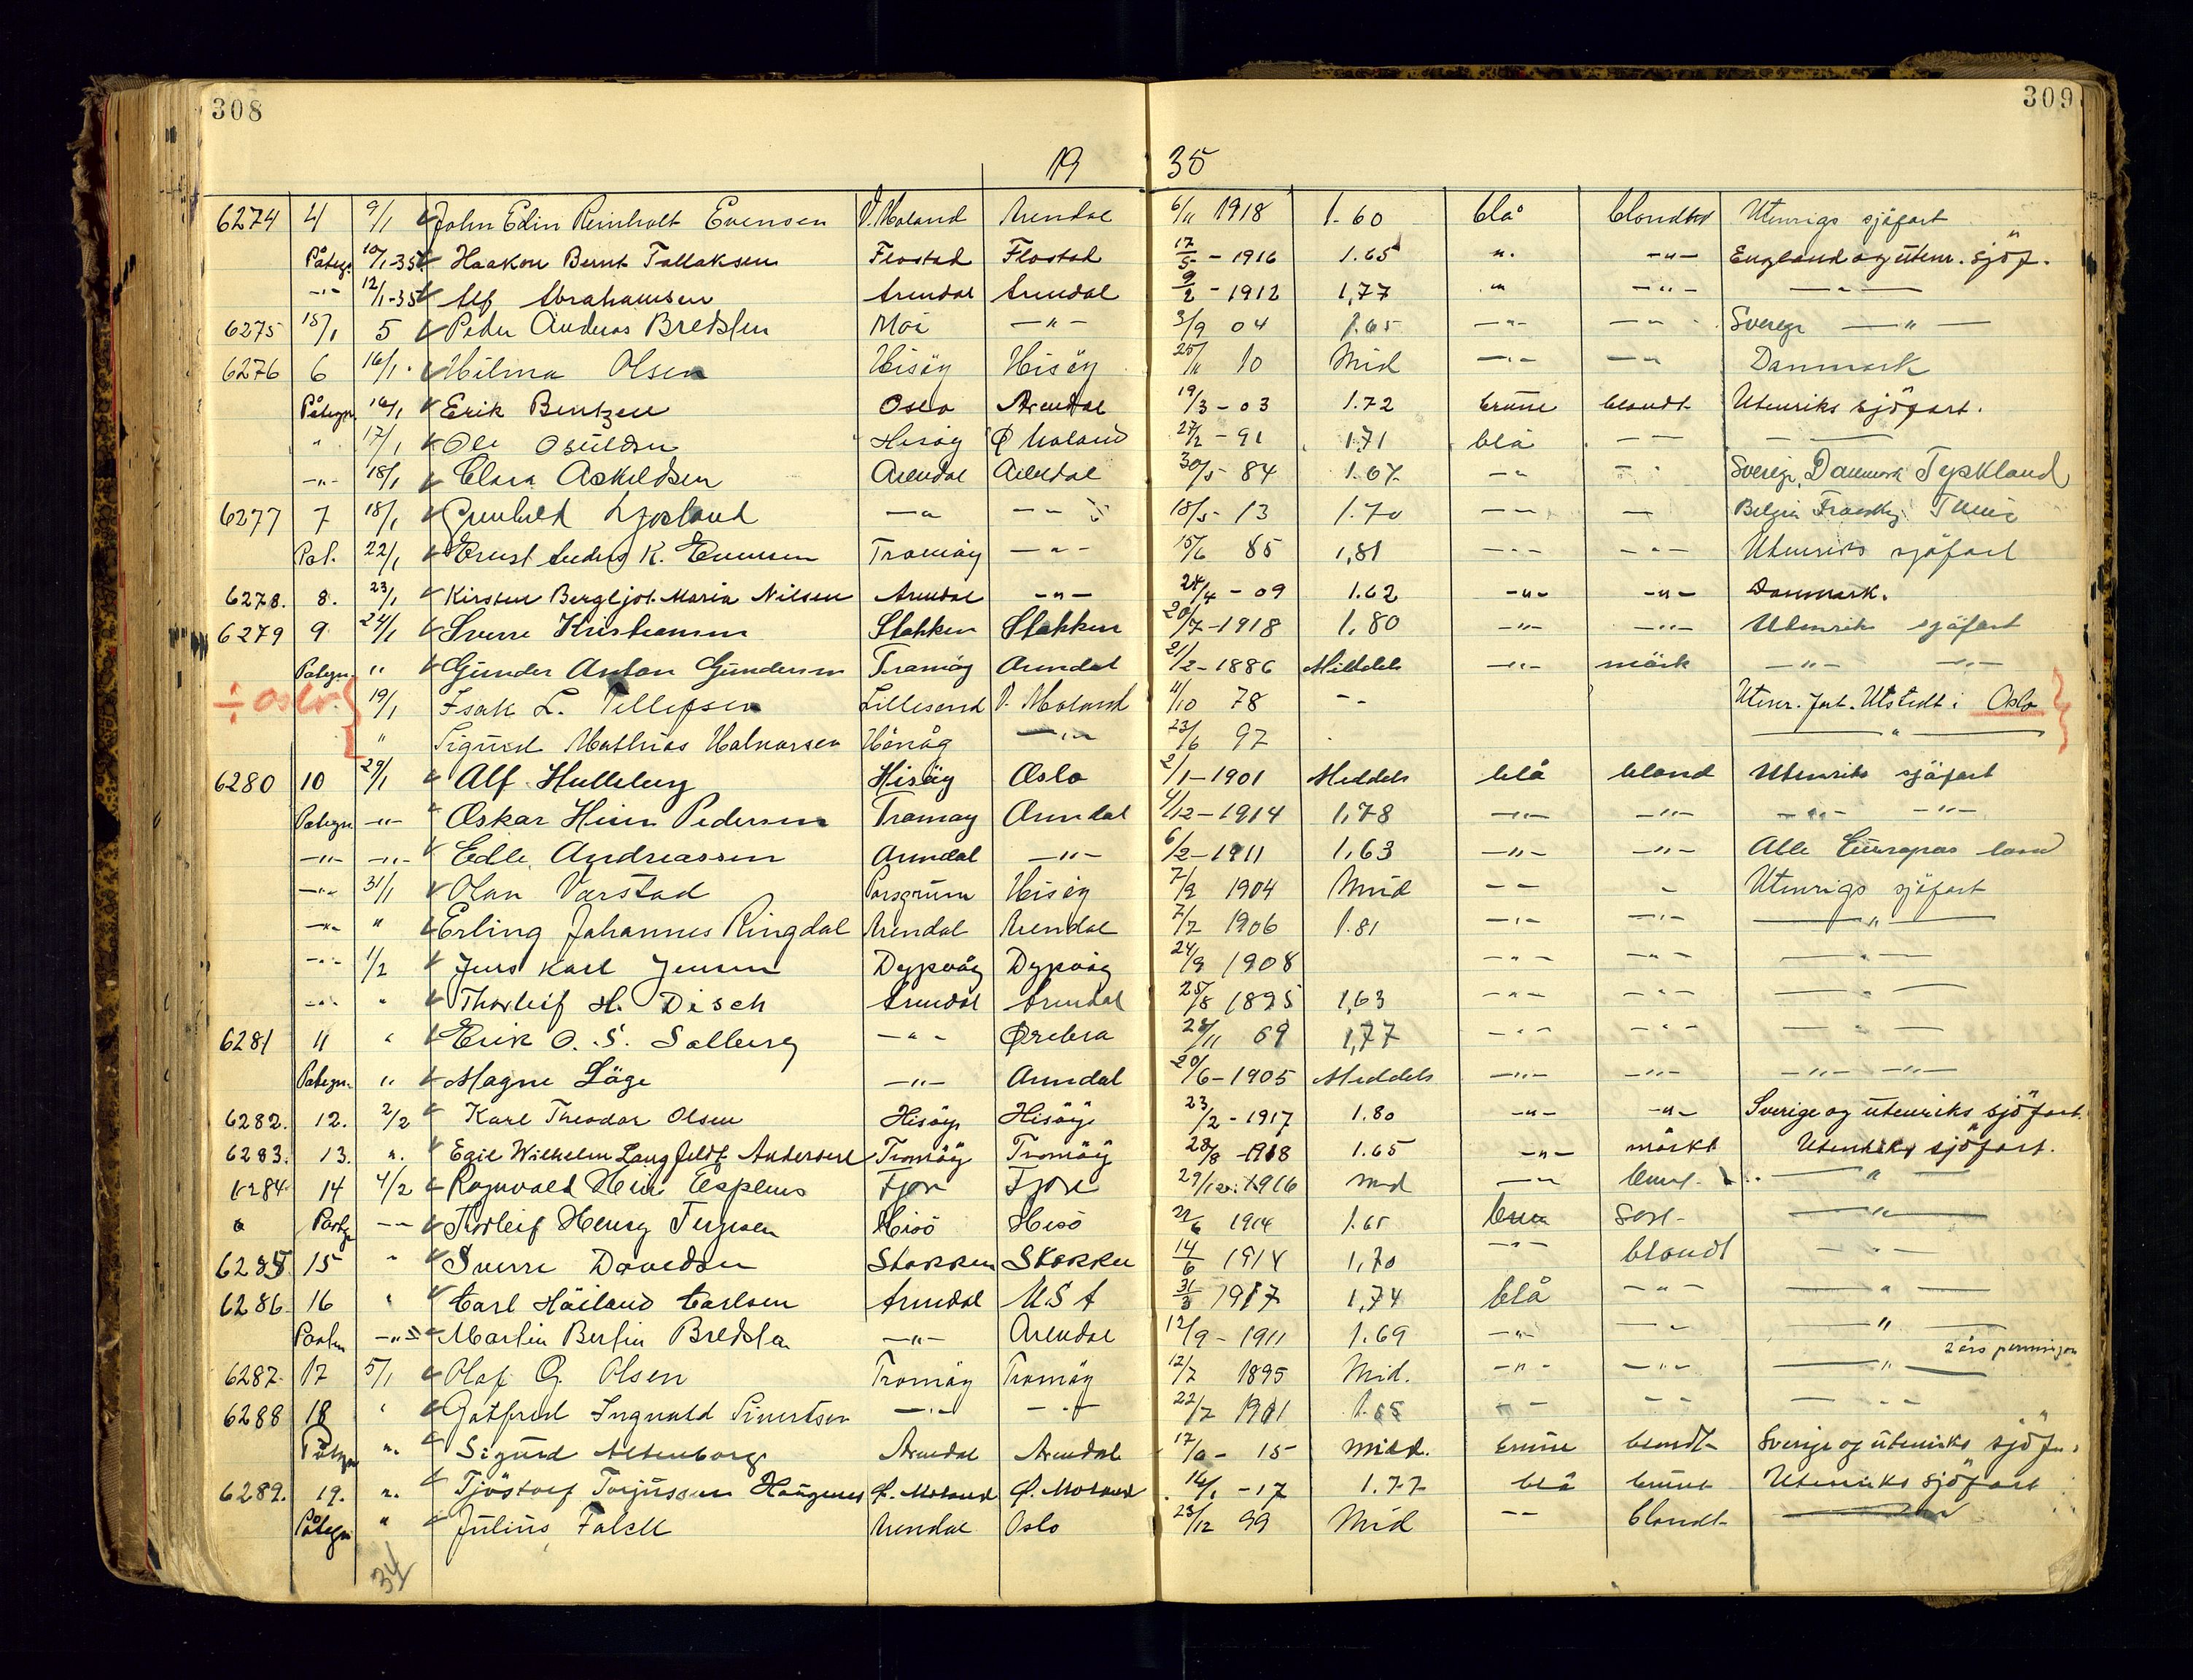 308
309
19 35
6274 4 9/1 John Edin Reinholt Evensen V. Moland Arendal 6/11 1918 1.60 blå blondt Utenrigs sjöfart
Påtegn. 10/1-35 Haakon Bernt Tallaksen Flostad Flostad 17/5 - 1916 1.65 " -"- England og utenr. sjöf.
-"- 12/1-35 Alf Abrahamsen Arendal Arendal 9/2 - 1912 1,77 " -"- -"-
6275 15/1 5 Peder Andreas Bredsten Moi -"- 3/9 04 1.65 -"- -"- Sverige -"-
6276 6 16/1 Hilma Olsen Hisöy Hisöy 25/11 10 Mid -"- -"- Danmark
Påtegn. 16/1 Erik Bentzen Oslo Arendal 19/3 - 03 1.72 brune blondt Utenriks sjöfart.
" 17/1 Ole Osuldsen Hisöy Ø Moland 27/2 - 91 1.71 blå - - -
-"- 18/1 Clara Askildsen Arendal Arendal 30/5 84 1.67 -"- -"- Sverige, Danmark Tyskland
6277 7 18/1 Gunhild Ljosland -"- -"- 18/5 - 13 1.70 - - - Belgia Frankrig
Pat. 22/1 Ernst Anders K. Evensen Tromöy -"- 15/6 85 1,81 -"- -"- Utenriks sjöfart
6278. 8. 23/1 Kirsten Bergljot Maria Nilsen Arendal -"- 24/4 - 09 1.62 -"- -"- Danmark.
6279 9 24/1 Sverre Kristiansen Stokken Stokken 20/7-1918 1.80 -"- -"- Utenriks sjöfart
Påtegn. " Gunder Anton Gundersen Tromöy Arendal 21/2-1886 Middels -"- mörk -"- -"-
÷ Oslo. 19/1 Isak L. Tellefsen Lillesand V. Moland 11/10 78 - Utenr. fart. Utstedt i Oslo
" Sigurd Mathias Halvorsen Hönåg -"- 23/6 97 -"-
6280 10 29/1 Alf Hulleberg Hisöy Oslo 2/1-1901 Middels blå blond Utenriks sjöfart
Påtegn. -"- Oskar Heim Pedersen Tromøy Arendal 4/12-1914 1,78 -"- -"- -"- -"-
-"- -"- Edle Andreassen Arendal -"- 6/2-1911 1,63 -"- -"- Alle Europas land
-"- 31/1 Olav Varstad Porsgrunn Hisöy 7/9 1904 Mid - - - Utenrigs sjöfart
-"- " Erling Johannes Ringdal Arendal Arendal 7/7 1906 1.81 -"- -"- -"-
-"- 1/2 Jens Karl Jensen Dypvåg Dypvåg 24/9 1908 -"- -"- -"-
-"- " Thorleif H. Disch Arendal Arendal 25/8 1895 1,63 -"- -"- -"-
6281 11 " Erik O. S. Solberg -"- Ørebro 28/11 69 1,77 -"- -"- -"-
Påtegn. " Magne Låge -"- Arendal 20/6-1905 Middels -"- -"- -"- -"-
6282. 12. 2/2 Karl Theodor Olsen Hisöy Hisöy 23/2 - 1917 1.80 -"- -"- Sverige og utenriks sjöfart.
6283. 13. ". Egil Wilhelm Langfeldt Andersen Tromöy Tromöy 28/8 - 1918 1.65 -"- mörkt Utenriks sjöfart.
6284 14 4/2 Ragnvald Hein Espenes Fjære Fjære 29/12 1916 mid -"- brunt -"-
Påtg -- Thorleif Henry Terjesen Hisö Hisö 22/6 1914 1.65 brun sort - -"-
6285 15 " Sverre Davidsen Stokken Stokken 14/6 1914 1,70 -"- blondt -"-
6286 16 " Carl Häiland Carlsen Arendal USA 31/3 1917 1,74 blå -"- -"-
Påtegn -"- Martin Bertin Bredsten -"- Arendal 12/9 - 1911 1.69 -"- -"- -"-
2 års permisjon
6287 17 5/1 Olaf G. Olsen Tromöy Tromöy 12/7 1895 Mid. -"- -"- -"-
6288 18 " Gotfred Ingvald Sivertsen -"- -"- 22/7 1901 1.65 - - - -"-
Påtegn ". Sigurd Altenborg Arendal Arendal 17/6 - 15 Midd. brune blondt Sverige og utenriks sjöf.
6289. 19. ". Tjöstolf Torjussen Haugenes Ø. Moland Ø. Moland 16/1 - 17 1.77 blå brunt Utenriks sjöfart
Påtegn " Julius Falck Arendal Oslo 23/12 99 Mid -- blondt
34